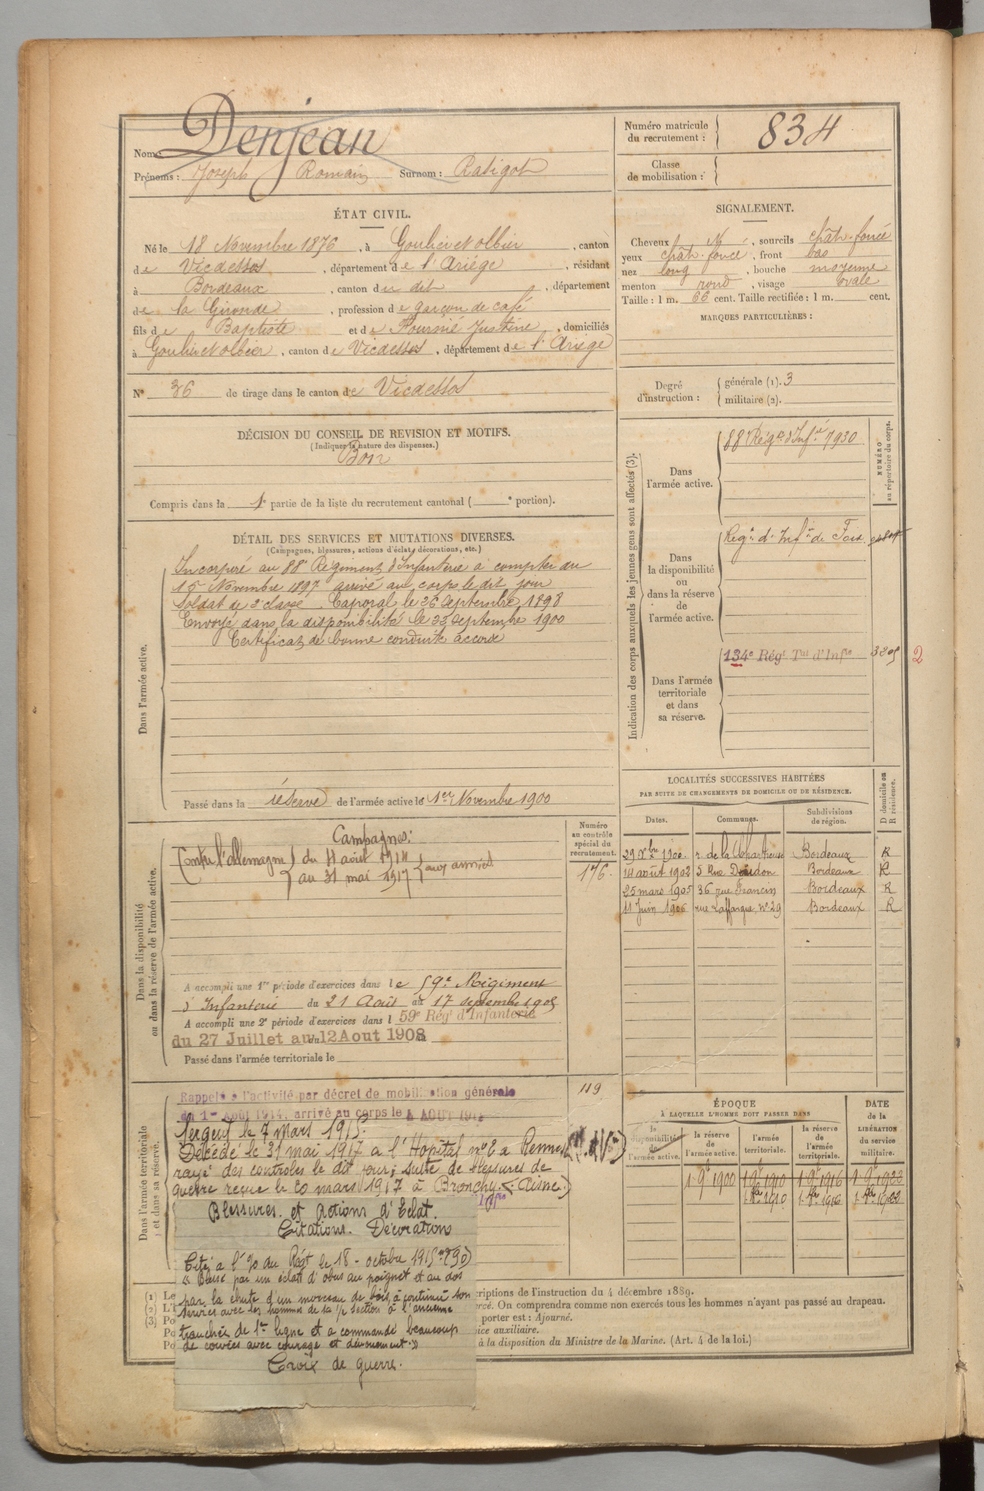 Nom : Denjean
Prénoms : Joseph Romain Surnom : Ratigot
Numéro matricule du recrutement : 834
Classe de mobilisation :
ÉTAT CIVIL.
Né le 18 Novembre 1876, à Goulier et olbier, canton
de Vicdessos, département de l'Ariège, résidant
à Bordeaux, canton du dit, département
de la Gironde, profession de garçon de café
fils de Baptiste et de Fournié Justine, domiciliés
à Goulier et olbier, canton de Vicdessos, département de l'Ariège
N° 36 de tirage dans le canton de Vicdessos
SIGNALEMENT.
Cheveux N, sourcils chât. foncé
yeux chât. foncé, front bas
nez long, bouche moyenne
menton rond, visage ovale
Taille : 1 m. 66 cent. Taille rectifiée : 1 m. cent.
MARQUES PARTICULIÈRES :
Degré d'instruction : générale (1). 3
militaire (2).
DÉCISION DU CONSEIL DE REVISION ET MOTIFS.
(Indiquer la nature des dispenses.)
Bon
Compris dans la 1e partie de la liste du recrutement cantonal ( e portion).
DÉTAIL DES SERVICES ET MUTATIONS DIVERSES.
(Campagnes, blessures, actions d'éclat, décorations, etc.)
Dans l'armée active.
Incorporé au 88e Régiment d'Infanterie à compter du
15 Novembre 1897 arrivé au corps le dit jour
Soldat de 2e classe. Caporal le 26 septembre 1898
Envoyé dans la disponibilité le 23 septembre 1900
Certificat de bonne conduite accordé
Passé dans la réserve de l'armée active le 1er Novembre 1900
Indication des corps auxquels les jeunes gens sont affectés (3).
NUMÉRO au répertoire du corps.
Dans l'armée active.
88 Régt d'Infie 7930
Dans la disponibilité ou dans la réserve de l'armée active.
Régt d'Infie de Foix
Dans l'armée territoriale et dans sa réserve.
134e Régt Tal d'Infie 3805
2
LOCALITÉS SUCCESSIVES HABITÉES
PAR SUITE DE CHANGEMENTS DE DOMICILE OU DE RÉSIDENCE.
Dates. Communes. Subdivisions de région. D domicile ou R résidence.
29 Xbre 1900 r. de la Chartreuse Bordeaux R
14 août 1902 5 Rue Doudon Bordeaux R
25 mars 1905 36 rue Francin Bordeaux R
11 Juin 1906 rue Laffargue n° 29 Bordeaux R
Dans la disponibilité ou dans la réserve de l'armée active.
Numéro au contrôle spécial du recrutement.
176
Campagnes :
Contre l'allemagne du 4 août 1914
au 31 mai 1917 aux armées
A accompli une 1re période d'exercices dans le 59e Régiment
d'Infanterie du 21 Août au 17 septembre 1905
A accompli une 2e période d'exercices dans l 59e Régt d'Infanterie
du 27 Juillet au 12 Aout 1908
Passé dans l'armée territoriale le
Dans l'armée territoriale et dans sa réserve.
119
Rappelé à l'activité par décret de mobilisation générale
du 1er Août 1914, arrivé au corps le 4 AOUT 1914
Sergent le 7 mars 1915.
Décédé le 31 mai 1917 à l'Hôpital n° 8 à Rennes
rayé des contrôles le dit jour, suite de blessures de
guerre reçue le 20 mars 1917 à Bronchy (Aisne)
Blessures et Actions d'Eclat.
Citations. Décorations
Cité à l'o/ au Régt le 18 - octobre 1915
« Blessé par un éclat d'obus au poignet et au dos
par la chute d'un morceau de bois, à continué son
service avec les hommes de sa 1/2 section à l'ancienne
tranchée de 1re ligne et a commandé beaucoup
de corvées avec courage et dévouement »
Croix de guerre.
ÉPOQUE
À LAQUELLE L'HOMME DOIT PASSER DANS
la disponibilité de l'armée active. la réserve de l'armée active. l'armée territoriale. la réserve de l'armée territoriale.
DATE de la LIBÉRATION du service militaire.
1 9e 1900 1 9e 1910 1 9e 1916 1 9e 1923
(1) Le
(2) L'I
(3) Po
Po
Po
criptions de l'instruction du 4 décembre 1889.
rcé. On comprendra comme non exercés tous les hommes n'ayant pas passé au drapeau.
porter est : Ajourné.
ice auxiliaire.
à la disposition du Ministre de la Marine. (Art. 4 de la loi.)